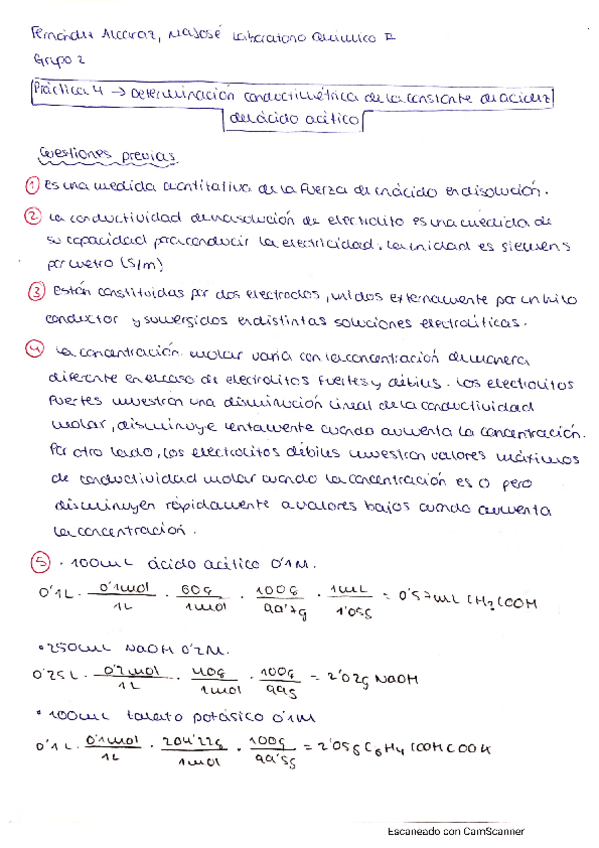 Fernández Alcaraz, MªJosé Laboratorio Químico II
Grupo 2
Práctica 4 → Determinación conductimétrica de la constante de acidez
del ácido acético
Cuestiones previas.
① Es una medida cuantitativa de la fuerza de un ácido en disolución.
② La conductividad de una solución de electrolito es una medida de
su capacidad para conducir la electricidad. La unidad es siemens
por metro (S/m)
③ Están constituidas por dos electrodos, unidos externamente por un hilo
conductor y sumergidos en distintas soluciones electrolíticas.
④ La concentración molar varía con la concentración de manera
diferente en el caso de electrolitos fuertes y débiles. Los electrolitos
fuertes muestran una disminución lineal de la conductividad
molar, disminuye lentamente cuando aumenta la concentración.
Por otro lado, los electrolitos débiles muestran valores máximos
de conductividad molar cuando la concentración es 0 pero
disminuyen rápidamente a valores bajos cuando aumenta
la concentración.
⑤ · 100mL ácido acético 0'1M.
0'1L · 0'1mol/1L · 60g/1mol · 100g/99'7g · 1mL/1'05g = 0'57mL CH3COOH
· 250mL NaOH 0'2M.
0'25L · 0'2mol/1L · 40g/1mol · 100g/99g = 2'02g NaOH
· 100mL talato potásico 0'1M
0'1L · 0'1mol/1L · 204'22g/1mol · 100g/99'5g = 2'05g C6H4COOHCOOK
Escaneado con CamScanner